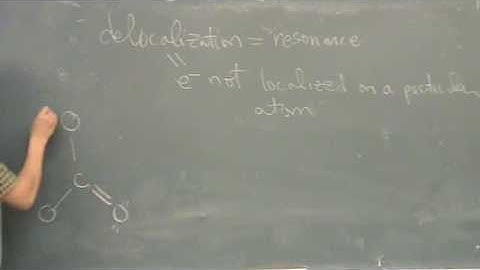 delocalization = resonance
||
e⁻ not localized on a particular
atom
O
C
O
O